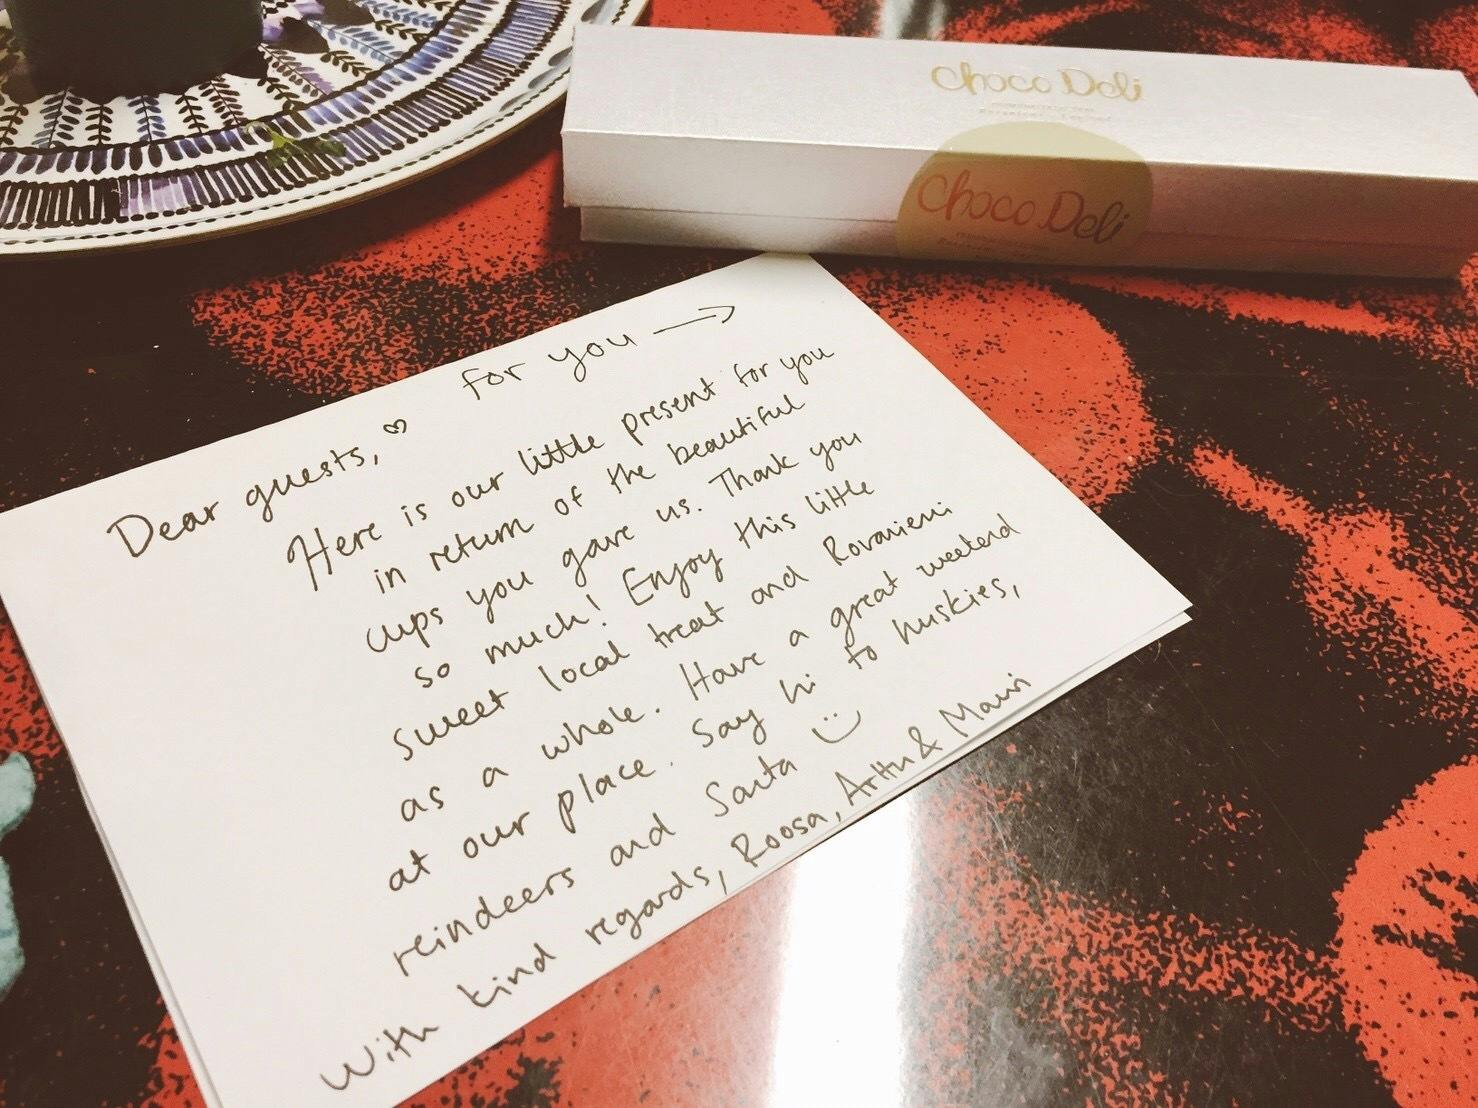 Choco Deli
Choco Deli
for you →
Dear guests, ♡
Here is our little present for you
in return of the beautiful
cups you gave us. Thank you
so much! Enjoy this little
sweet local treat and Rovaniemi
as a whole. Have a great weekend
at our place. Say hi to huskies,
reindeers and Santa :)
With kind regards, Roosa, Arttu & Mauri